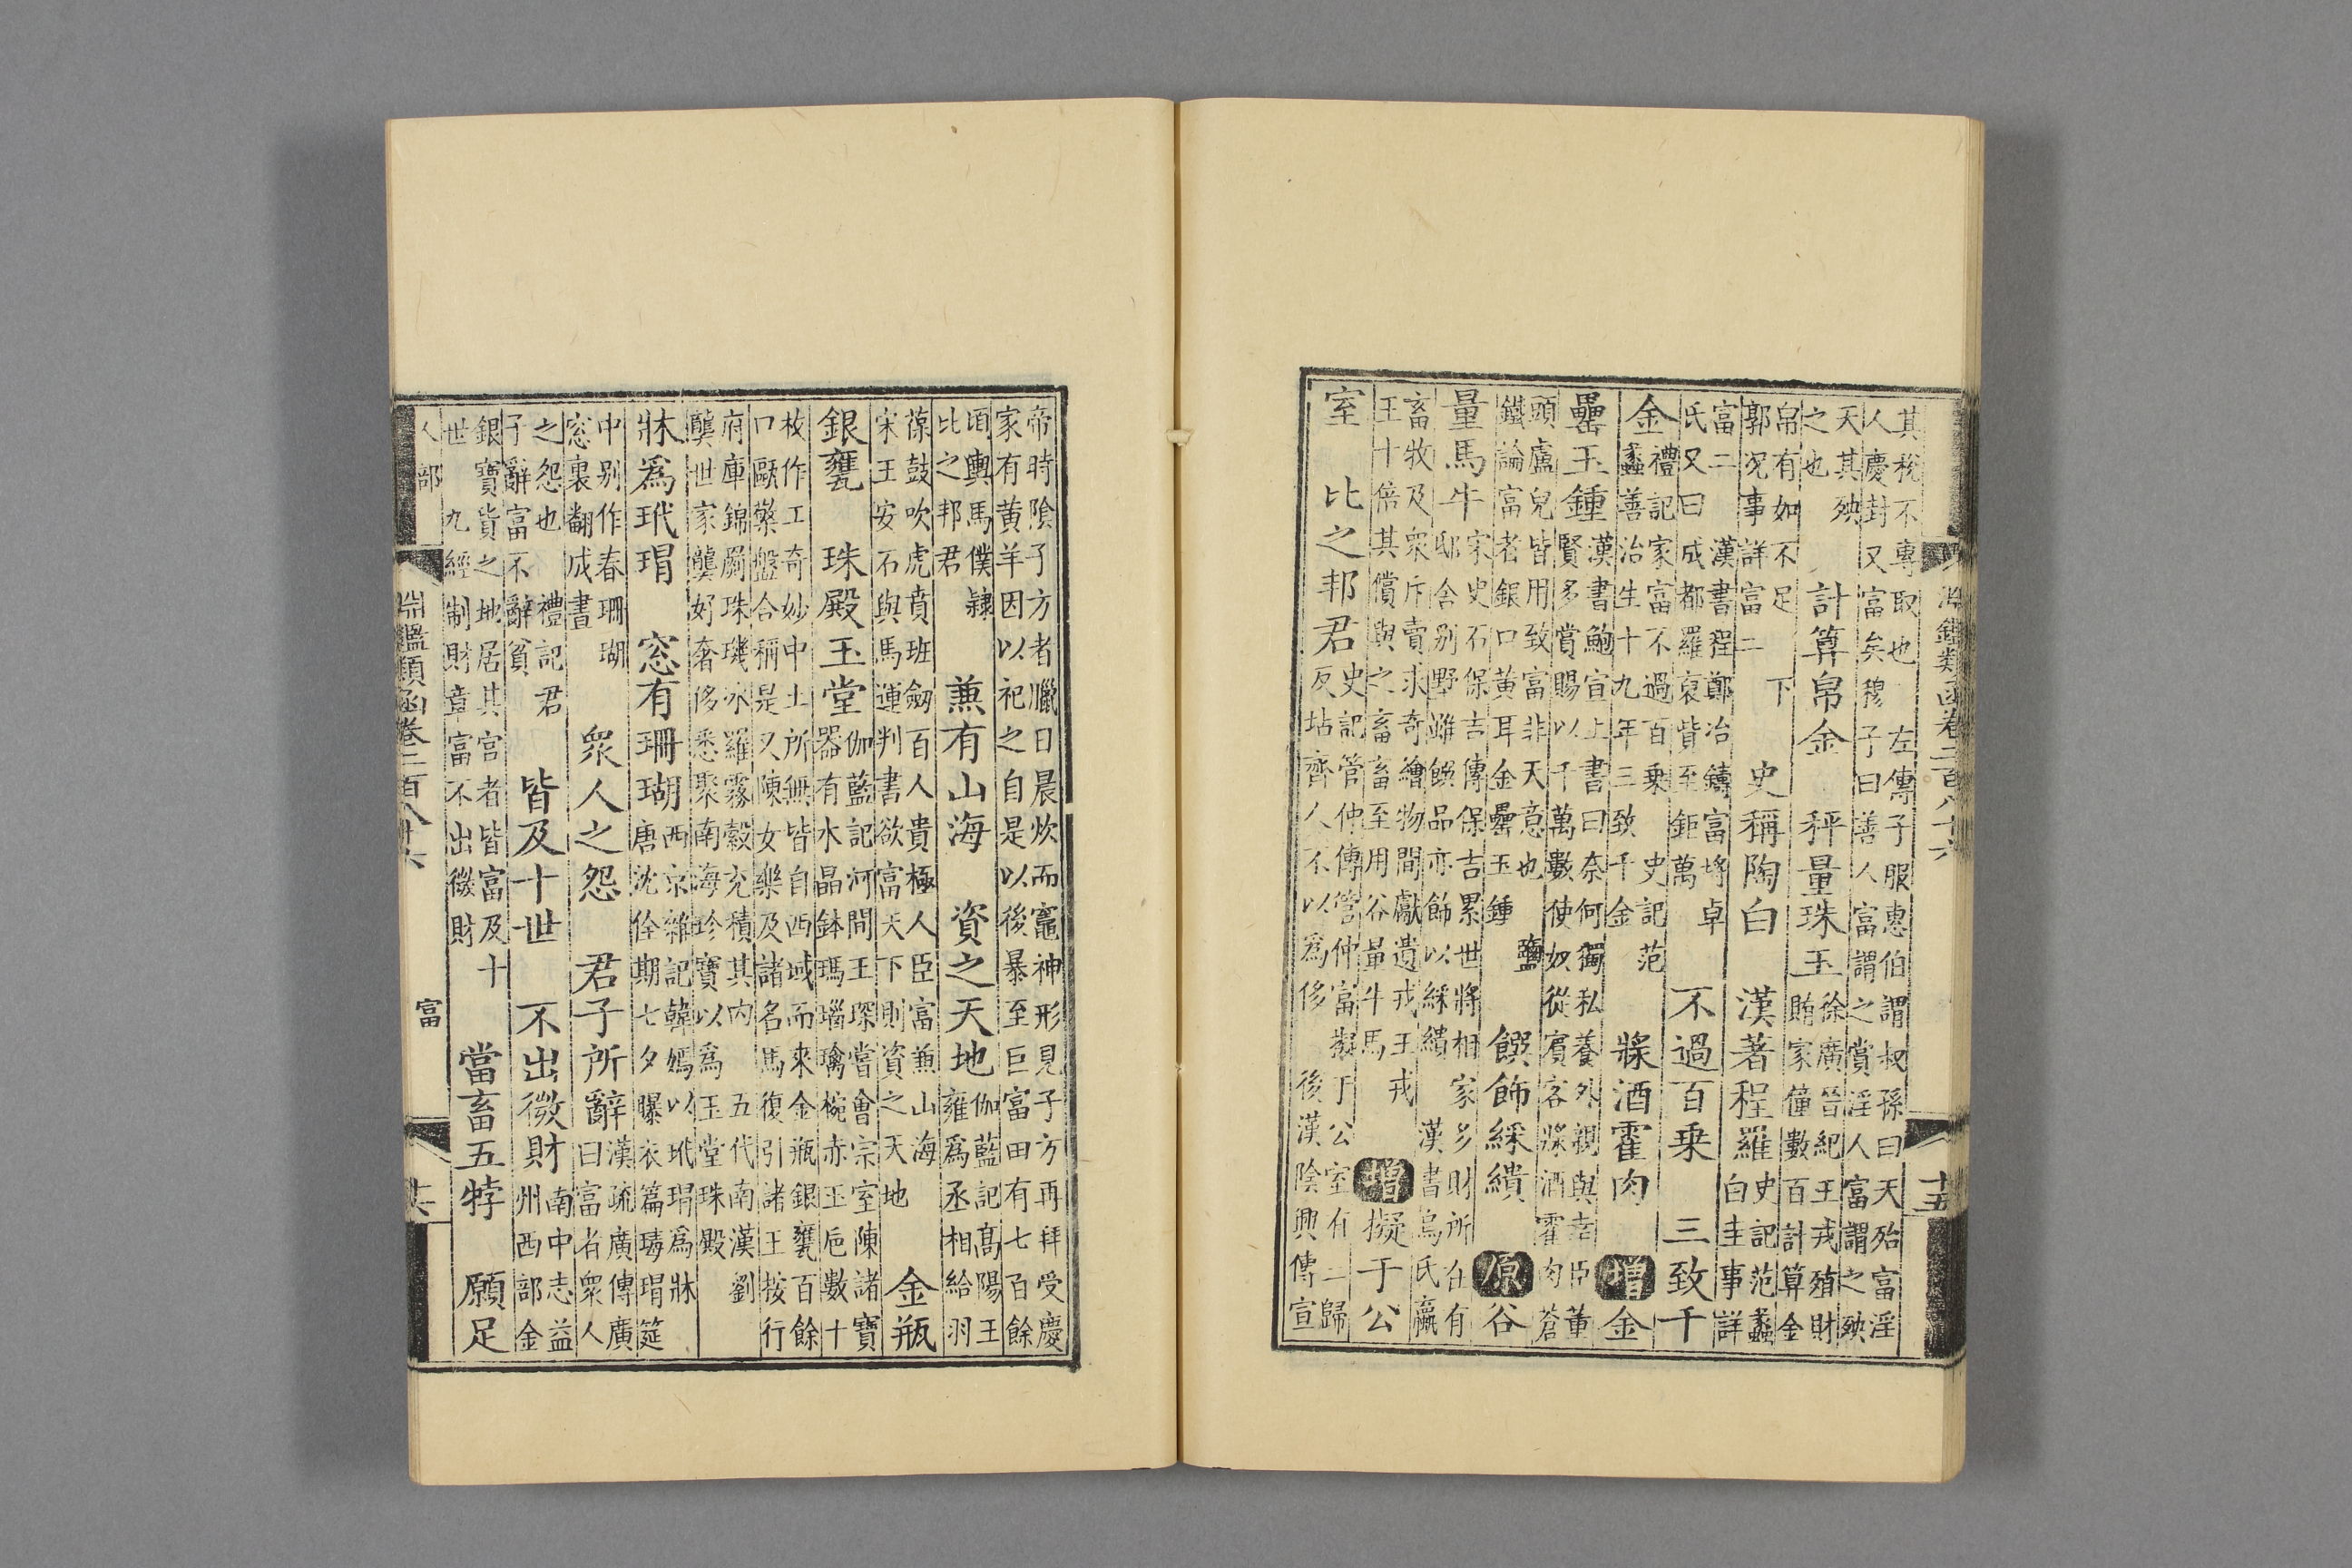 淵鑑類函卷二百八十六　十五
其稅不專取也　左傳子服惠伯謂叔孫曰天殆富淫
人慶封又富矣穆子曰善人富謂之賞淫人富謂之殃
天其殃
之也
計算帛金　秤量珠玉
徐廣晉紀王戎殖財
賄家僮數百計算金
帛有如不足　下
郭況事詳富二
史稱陶白　漢著程羅
史記范蠡
白圭事詳
富二　漢書程鄭冶鑄富埒卓
氏又曰成都羅裒皆至鉅萬
不過百乗　三致千
金
禮記家富不過百乗　史記范
蠡善治生十九年三致千金
漿酒霍肉　增金
罍玉鍾
漢書鮑宣上書曰奈何獨私養外親與幸臣董
賢多賞賜以千萬數使奴從賓客漿酒霍肉蒼
頭廬兒皆用致富非天意也　鹽
鐵論富者銀口黄耳金罍玉鍾
饌飾綵繢　原谷
量馬牛
宋史石保吉傳保吉累世將相家多財所在有
邸舍别野雖饌品亦飾以綵繢　漢書烏氏蠃
畜牧及衆斥賣求奇繒物間獻遺戎王戎
王十倍其償與之畜畜至用谷量牛馬
增擬于公
室　比之邦君
史記管仲傳管仲富擬于公室有二歸
反坫齊人不以為侈　後漢陰興傳宣
帝時陰子方者臘日晨炊而竈神形見子方再拜受慶
家有黄羊因以祀之自是以後暴至巨富田有七百餘
頃輿馬僕隸
比之邦君
兼有山海　資之天地
伽藍記高陽王
雍爲丞相給羽
葆鼓吹虎賁班劒百人貴極人臣富兼山海
宋王安石與馬運判書欲富天下則資之天地
金瓶
銀甕　珠殿玉堂
伽藍記河間王琛嘗會宗室陳諸寶
器有水晶鉢瑪瑙琉璃椀赤玉巵數十
枚作工奇妙中土所無皆自西域而來金瓶銀甕百餘
口甌檠盤合稱是又陳女樂及諸名馬復引諸王按行
府庫錦罽珠璣冰羅霧縠充積其内　五代南漢劉
龑世家龑好奢侈悉聚南海珍寶以爲玉堂珠殿
牀爲玳瑁　窓有珊瑚
西京雜記韓嫣以玳瑁爲牀
唐沈佺期七夕曝衣篇瑇瑁筵
中别作春珊瑚
窓裏翻成晝
衆人之怨　君子所辭
漢疏廣傳廣
曰富者衆人
之怨也　禮記君
子辭富不辭貧
皆及十世　不出徴財
南中志益
州西部金
銀寶貨之地居其官者皆富及十
世　九經制財章富不出徴財
當畜五牸　願足
人部　富
淵鑑類函卷二百八十六　十六